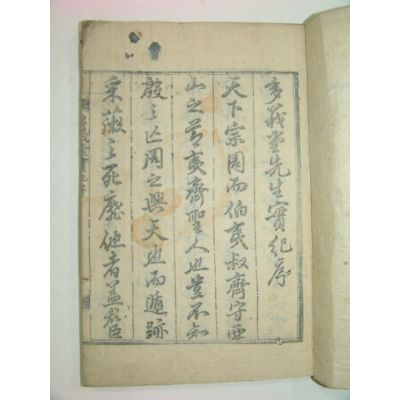 多義堂先生實紀序
天下宗周而伯夷叔齊守西
山之節夷齊聖人也豈不知
殷之亡周之興天也而遁跡
采薇之死靡他者蓋君臣